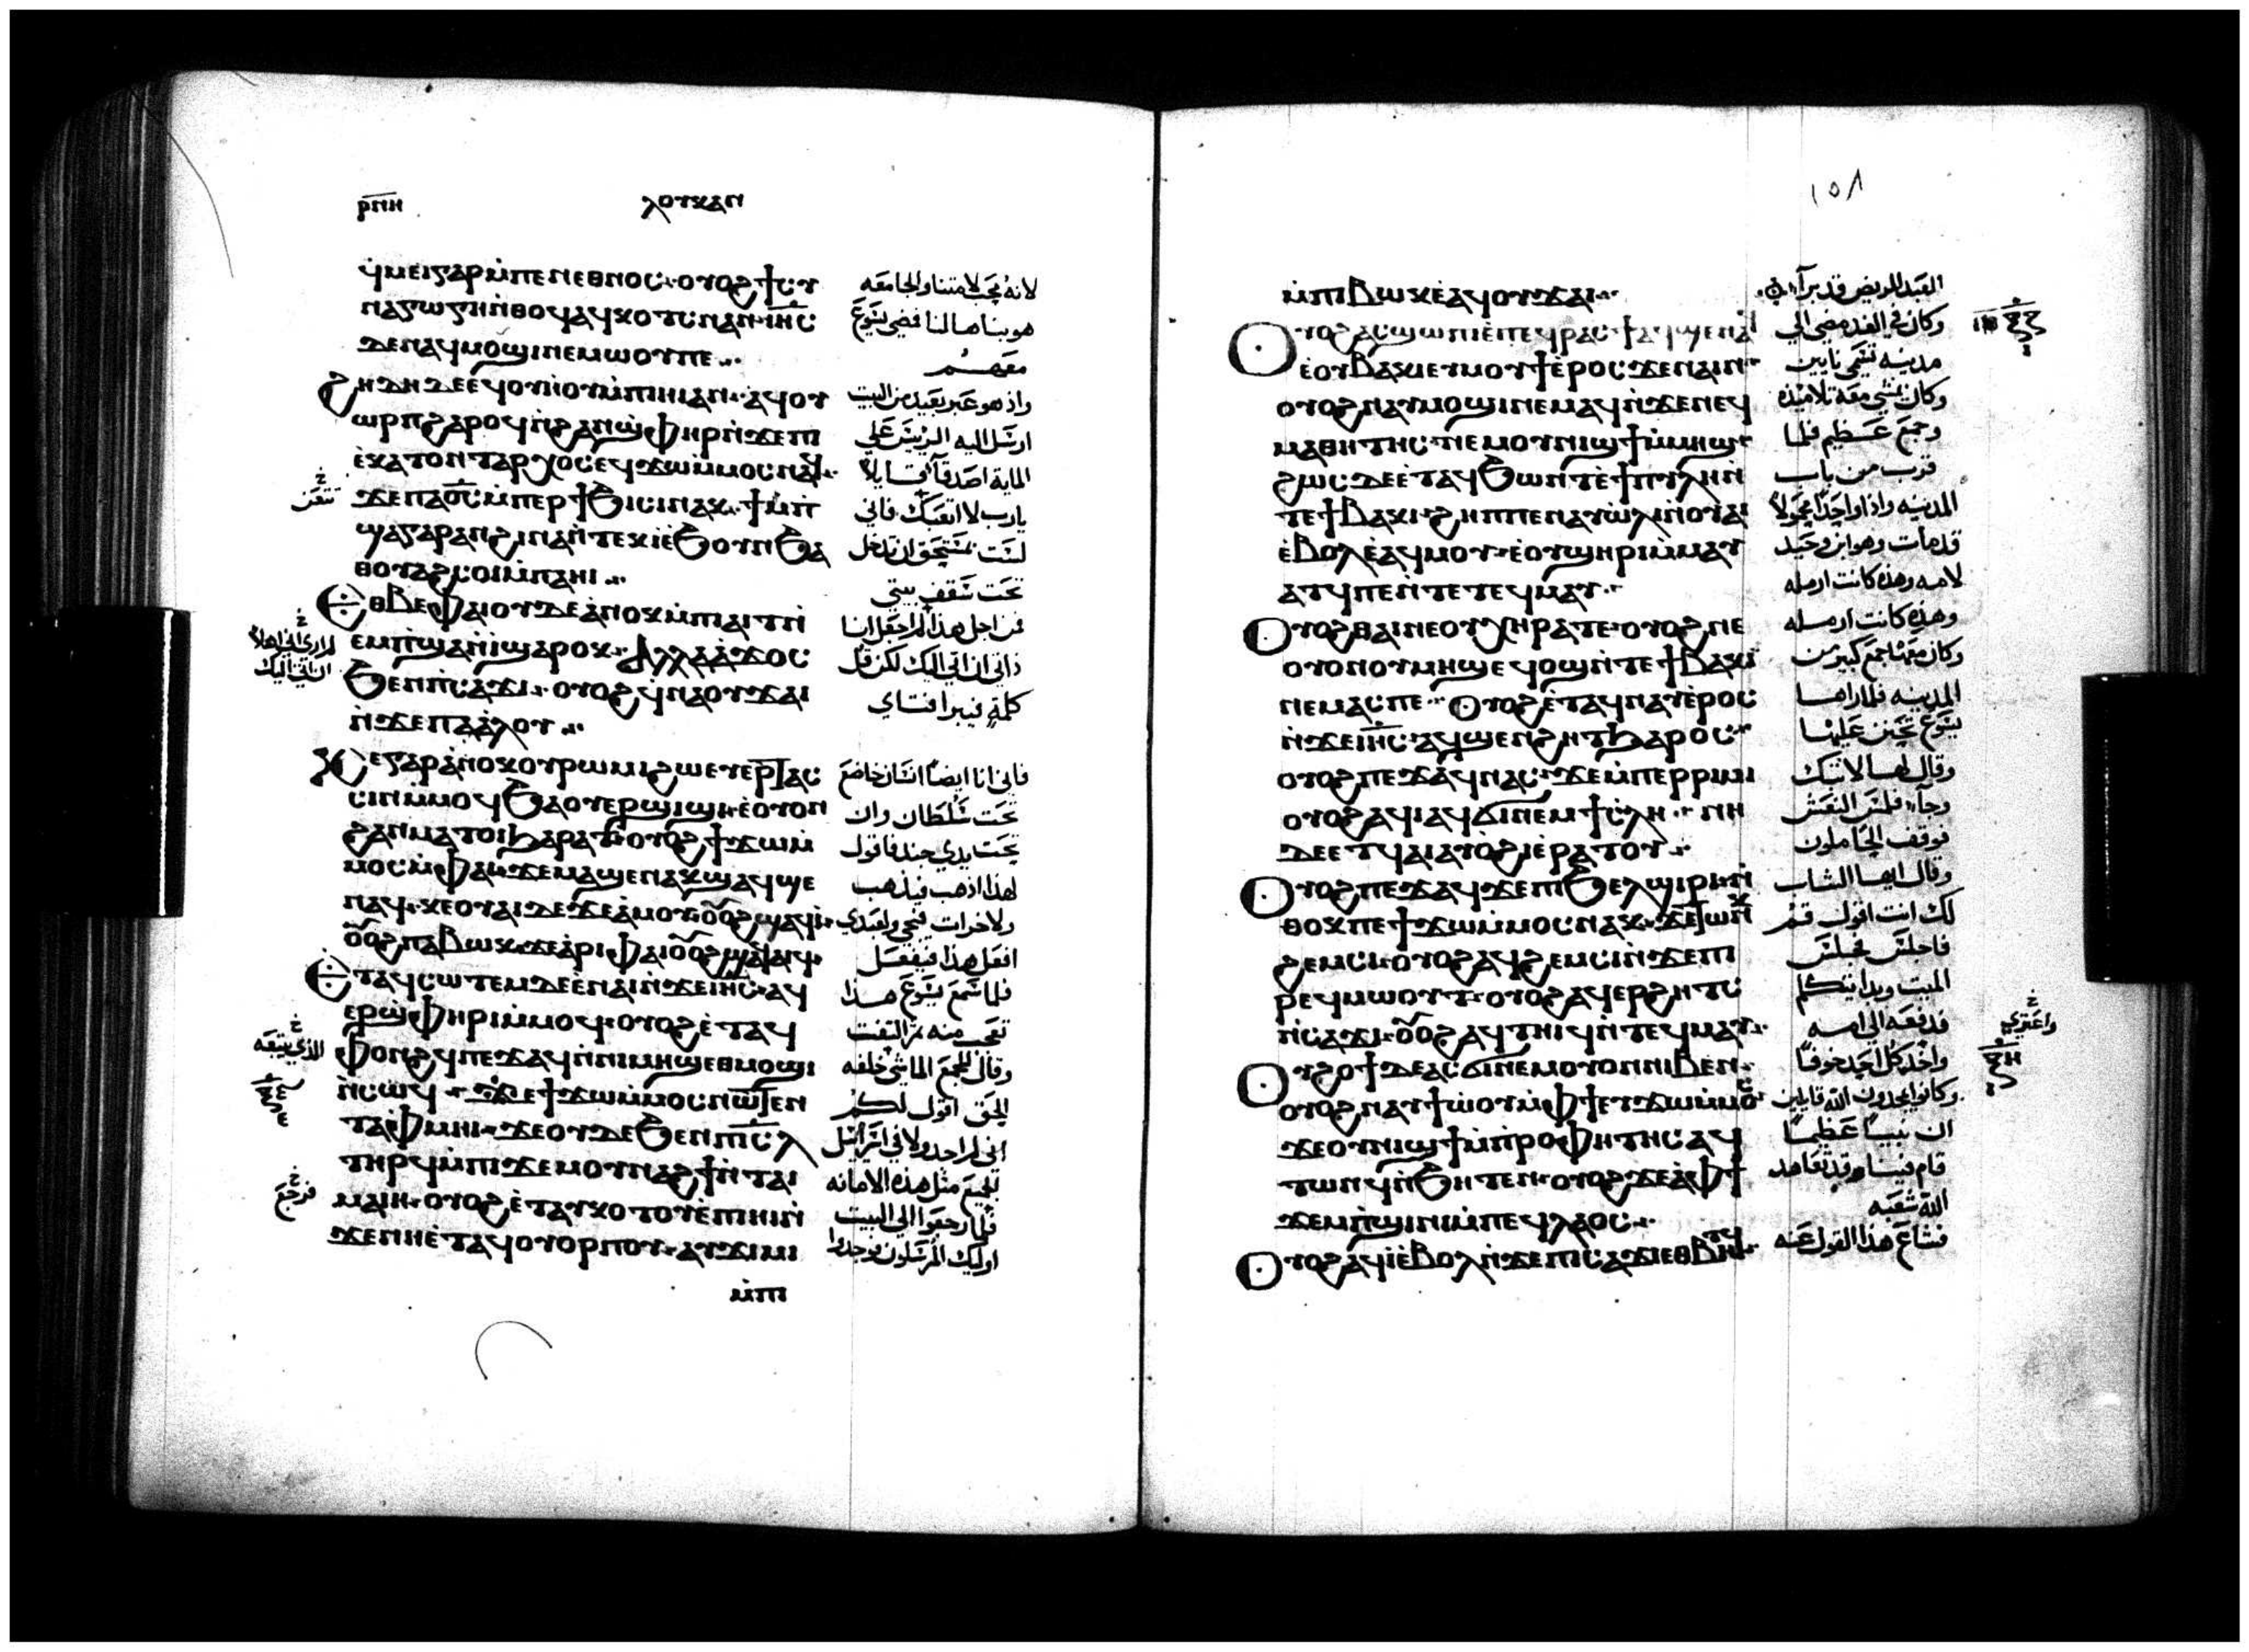 ⲣⲛⲏ ⲗⲟⲩⲕⲁⲛ
ϥⲙⲉⲓⲅⲁⲣⲙ̀ⲡⲉⲛⲉⲑⲛⲟⲥ · ⲟⲩⲟϩϯⲥⲩ
ⲛⲁⲅⲱⲅⲏⲛ̀ⲑⲟϥⲁϥⲕⲟⲧⲥⲛⲁⲛ · ⲓⲏ̅ⲥ̅
ⲇⲉⲛⲁϥⲙⲟϣⲓⲛⲉⲙⲱⲟⲩⲡⲉ
ϩⲏⲇⲏⲇⲉⲉϥⲟⲩⲏⲟⲩⲙ̀ⲡⲓⲏⲓⲁⲛ · ⲁϥⲟⲩ
ⲱⲣⲡϩⲁⲣⲟϥⲛ̀ϩⲁⲛϣⲫⲏⲣⲛ̀ϫⲉⲡⲓ
ⲉ̀ⲕⲁⲧⲟⲛⲧⲁⲣⲭⲟⲥⲉϥϫⲱⲙ̀ⲙⲟⲥⲛⲁϥ
ϫⲉⲡⲁⲟ̅ⲥ̅ⲙ̀ⲡⲉⲣϯϧⲓⲥⲓⲛⲁⲕ · ϯⲙ̀ⲡ
ϣⲁⲅⲁⲣⲁⲛϩⲓⲛⲁⲛ̀ⲧⲉⲕⲓ̀ⲉ̀ϧⲟⲩⲛϧⲁ
ⲑⲟⲩⲁϩⲥⲟⲓⲙ̀ⲡⲁⲏⲓ
ⲉⲑⲃⲉⲫⲁⲓⲟⲩⲇⲉⲁ̀ⲛⲟⲕⲙ̀ⲡⲁⲓⲧⲛ̀
ⲉⲙⲡ̀ϣⲁⲛ̀ⲓ̀ϣⲁⲣⲟⲕ · ⲁⲗⲗⲁⲁ̀ϫⲟⲥ
ϧⲉⲛⲡⲓⲥⲁϫⲓ · ⲟⲩⲟϩϥ̀ⲛⲁⲟⲩϫⲁⲓ
ⲛ̀ϫⲉⲡⲁⲁ̀ⲗⲟⲩ
ⲕⲉⲅⲁⲣⲁ̀ⲛⲟⲕⲟⲩⲣⲱⲙⲓϩⲱⲉⲩⲉⲣⲧⲁⲥ
ⲥⲓⲛⲙ̀ⲙⲟϥϧⲁⲟⲩⲉⲣϣⲓϣⲓ · ⲉ̀ⲟⲩⲟⲛ
ϩⲁⲛⲙⲁⲧⲟⲓϧⲁⲣⲁⲧ · ⲟⲩⲟϩϯϫⲱⲙ̀
ⲙⲟⲥⲙ̀ⲫⲁⲓ · ϫⲉⲙⲁϣⲉⲛⲁⲕϣⲁϥϣⲉ
ⲛⲁϥ · ⲕⲉⲟⲩⲁⲓⲇⲉϫⲉⲁ̀ⲙⲟⲩ · ⲟⲟϩϣⲁϥⲓ̀
ⲟⲟϩⲡⲁⲃⲱⲕ · ϫⲉⲁ̀ⲣⲓⲫⲁⲓⲟⲟϩϣⲁϥⲁⲓϥ
ⲉⲧⲁϥⲥⲱⲧⲉⲙⲇⲉⲉ̀ⲛⲁⲓⲛ̀ϫⲉⲓⲏ̅ⲥ̅ · ⲁϥ
ⲉⲣϣ̀ⲫⲏⲣⲓⲙ̀ⲙⲟϥ · ⲟⲩⲟϩⲉ̀ⲧⲁϥ
ⲫⲟⲛϩϥⲡⲉϫⲁϥⲛ̀ⲛⲓⲙⲏϣⲉⲑⲙⲟϣⲓ
ⲛ̀ⲥⲱϥ · ϫⲉϯϫⲱⲙ̀ⲙⲟⲥⲛⲱⲧⲉⲛ
ⲧⲁⲫⲙⲏⲓ · ϫⲉⲟⲩⲇⲉϧⲉⲛⲡⲓⲥ̅ⲗ̅
ⲧⲏⲣϥⲙ̀ⲡⲓϫⲉⲙⲟⲩⲛⲁϩϯⲛ̀ⲧⲁⲓ
ⲙⲁⲓⲏ · ⲟⲩⲟϩⲉ̀ⲧⲁⲩⲕⲟⲧⲟⲩⲉ̀ⲡⲓⲏⲓⲛ̀
ϫⲉⲛⲏⲉ̀ⲧⲁϥⲟⲩⲟⲣⲡⲟⲩ · ⲁⲩϫⲓⲙⲓ
ⲙ̀ⲡⲓ
لانه يحب لامتنا والجامعه
هو بناها لنا فمضي يسوع
معهم
واذ هو غير بعيد من البيت
ارسل اليه الريس علي
الماية اصدقآ قايلا
يارب لا تتعب فاني
لست بمستحق ان تدخل
تحت سقف بيتي
من اجل هذا لم اجعل انا
ذاتي ان اتي اليك لكن قل
كلمة فيبرا فتاي
فاني انا ايضا انسان خاضع
تحت سلطان وان
تحت يدي جند فاقول
لهذا اذهب فيذهب
ولاخر ات فيجي ولعبدي
افعل هذا فيفعل
فلما سمع يسوع هذا
تعجب منه ثم التفت
وقال للجمع الماشي خلفه
الحق اقول لكم
اني لم اجد ولا في اسراييل
الجميع مثل هذه الامانه
فلما رجعوا الي البيت
اوليك المرسلون فوجدوا
١٥٨
ⲙ̀ⲡⲓⲃⲱⲕⲉ̀ⲁϥⲟⲩϫⲁⲓ
ⲟⲩⲟϩⲁⲥϣⲱⲡⲓⲉ̀ⲡⲉϥⲣⲁⲥϯⲁϥϣⲉⲛⲁϥ
ⲉ̀ⲟⲩⲃⲁⲕⲓⲉⲩⲙⲟⲩϯⲉ̀ⲣⲟⲥϫⲉⲛⲁⲓⲛ
ⲟⲩⲟϩⲛⲁⲩⲙⲟϣⲓⲛⲉⲙⲁϥⲛ̀ϫⲉⲛⲉϥ
ⲙⲁⲑⲏⲧⲏⲥ · ⲛⲉⲙⲟⲩⲛⲓϣϯⲙ̀ⲙⲏϣ
ϩⲱⲥⲇⲉⲉ̀ⲧⲁϥϧⲱⲛⲧⲉ̀ϯⲡⲩⲗⲏⲛ̀
ⲧⲉϯⲃⲁⲕⲓ · ϩⲏⲡⲡⲉⲛⲁⲩⲱ̀ⲗⲓⲛ̀ⲟⲩⲁⲓ
ⲉ̀ⲃⲟⲗⲉ̀ⲁϥⲙⲟⲩ · ⲉ̀ⲟⲩϣⲏⲣⲓⲙ̀ⲙⲁⲩ
ⲁⲧϥⲡⲉⲛ̀ⲧⲉⲧⲉϥⲙⲁⲩ
ⲟⲩⲟϩⲑⲁⲓⲛⲉⲟⲩⲭⲏⲣⲁⲧⲉ · ⲟⲩⲟϩⲛⲉ
ⲟⲩⲟⲛⲟⲩⲙⲏϣⲉϥⲟϣⲛ̀ⲧⲉϯⲃⲁⲕⲓ
ⲛⲉⲙⲁⲥⲡⲉ · ⲟⲩⲟϩⲉ̀ⲧⲁϥⲛⲁⲩⲉ̀ⲣⲟⲥ
ⲛ̀ϫⲉⲓⲏ̅ⲥ̅ · ⲁϥϣⲉⲛϩⲏⲧϧⲁⲣⲟⲥ
ⲟⲩⲟϩⲡⲉϫⲁϥⲛⲁⲥ · ϫⲉⲙ̀ⲡⲉⲣⲣⲓⲙⲓ
ⲟⲩⲟϩⲁϥⲓⲁϥϭⲓⲛⲉⲙϯⲥ̀ⲗⲏ · ⲛⲏ
ⲇⲉⲉⲧϥⲁⲓⲁⲩⲟ̀ϩⲓⲉ̀ⲣⲁⲧⲟⲩ
ⲟⲩⲟϩⲡⲉϫⲁϥϫⲉⲡⲓϧⲉⲗϣⲓⲣⲓⲛ̀
ⲑⲟⲕⲡⲉϯϫⲱⲙ̀ⲙⲟⲥⲛⲁⲕ · ϫⲉⲧⲱⲛⲕ
ϩⲉⲙⲥⲓ · ⲟⲩⲟϩⲁϥϩⲉⲙⲥⲓⲛ̀ϫⲉⲡⲓ
ⲣⲉϥⲙⲱⲟⲩⲧ · ⲟⲩⲟϩⲁϥⲉⲣϩⲏⲧⲥ
ⲛ̀ⲥⲁϫⲓ · ⲟⲟϩⲁϥⲧⲏⲓϥⲛ̀ⲧⲉϥⲙⲁⲩ
ⲟⲩϩⲟϯⲇⲉⲁⲥϭⲓⲛⲉⲙⲟⲩⲟⲛⲛⲓⲃⲉⲛ
ⲟⲩⲟϩⲛⲁⲩϯⲱ̀ⲟⲩⲙ̀ⲫϯⲉⲩϫⲱⲙ̀ⲙⲟⲥ
ϫⲉⲟⲩⲛⲓϣϯⲙ̀ⲡⲣⲟⲫⲏⲧⲏⲥⲁϥ
ⲧⲱⲛϥⲛ̀ϧⲏⲧⲉⲛ · ⲟⲩⲟϩϫⲉⲁ̀ⲫϯ
ϫⲉⲙⲡ̀ϣⲓⲛⲓⲙ̀ⲡⲉϥⲗⲁⲟⲥ
ⲟⲩⲟϩⲁϥⲓ̀ⲉ̀ⲃⲟⲗⲛ̀ϫⲉⲡⲓⲥⲁϫⲓⲉⲑⲃⲏⲧϥ
العبد المريض قد برآ
وكان في الغد مضي الي
مدينه تسمي نايين
وكان يمشي معه تلاميذه
وجمع عظيم فلما
قرب من باب
المدينه واذا واحدا محمولا
قد مات وهو ابن وحيد
لامه وهذه كانت ارمله
وهذه كانت ارمله
وكان معها جمع كبير من
المدينه فلما راها
يسوع تحنن عليها
وقال لها لا تبك
وجآ فلمس النعش
فوقف الحاملون
وقال ايها الشاب
لك انت اقول قم
فاجلس فجلس
الميت وبدا يتكلم
فدفعه الي امه
واخذ كل احد خوفا
وكانوا يمجدون الله قايلين
ان نبيا عظيما
قام فينا وقد تعاهد
الله شعبه
فشاع هذا القول عنه